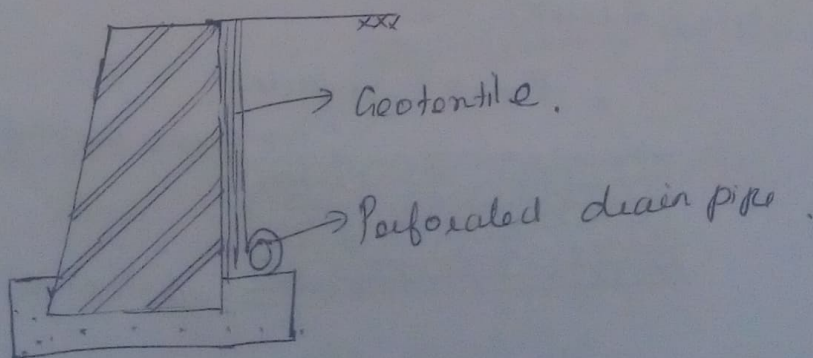 Geotentile.
Perforated drain pipe.